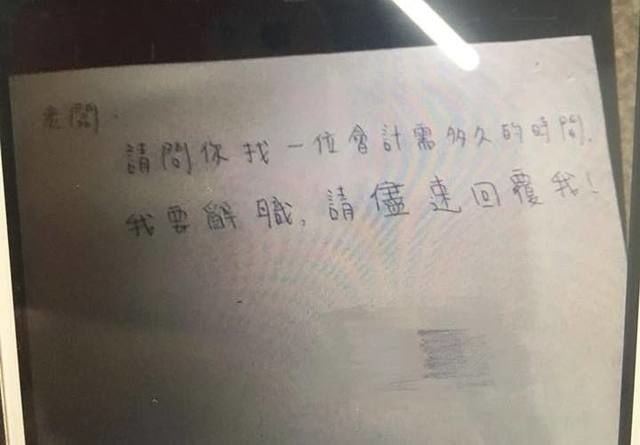 老闆,
請問你找一位會計需多久的時間.
我要辭職,請儘速回覆我!